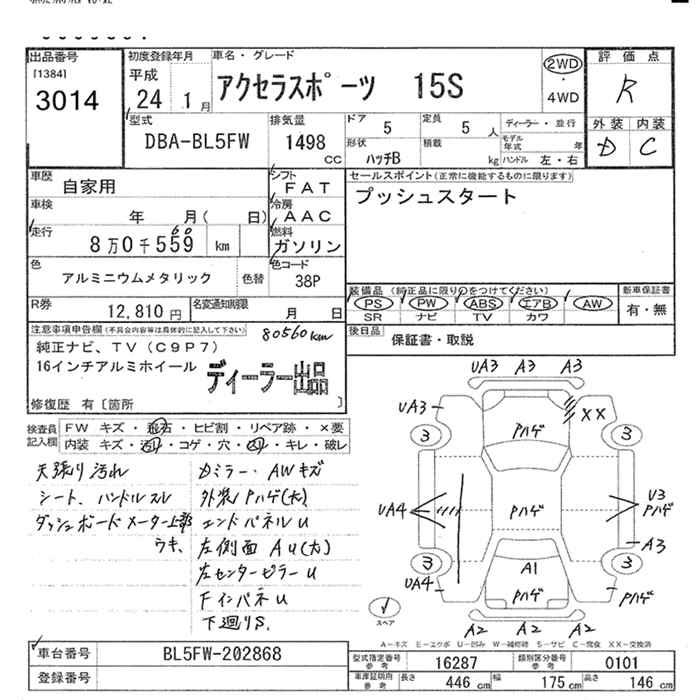 出品番号
[1384]
3014
初度登録年月
平成
24 1月
車名・グレード
アクセラスポーツ 15S
2WD
・
4WD
評価点
R
外装 内装
D C
型式
DBA-BL5FW
排気量
1498
CC
ドア 5
定員 5 人
ディーラー・並行
形状
ハッチB
積載 kg
モデル年式 年
ハンドル 左・右
車歴
自家用
シフト
FAT
セールスポイント(正常に機能するものに限ります)
プッシュスタート
車検 年 月( 日)
冷房
AAC
走行 60
8万0千559 km
燃料
ガソリン
色
アルミニウムメタリック
色替
色コード
38P
装備品 (純正品に限り○をつけてください)
PS PW ABS エアB AW
SR ナビ TV カワ
新車保証書
有・無
R券
12,810 円
名変通知期限
月 日
後日品
保証書・取説
注意事項申告欄(不具合内容等は具体的に記入して下さい)
80560km
純正ナビ、TV(C9P7)
16インチアルミホイール
ディーラー出品
修復歴 有〔箇所 〕
検査員記入欄
FW キズ・飛石・ヒビ割・リペア跡・×要
内装 キズ・汚れ・コゲ・穴・スレ・キレ・破レ
天張り汚れ
シート、ハンドルスレ
ダッシュボードメーター上部
ウキ、
カミラー・AWキズ
外装Pハゲ(大)
エンドパネルU
左側面 AU(大)
左センターピラーU
FインパネU
下廻りS.
UA3 A3 A3
UA3
XX
Pハゲ
3 3
UA4
Pハゲ
U3
Pハゲ
A3
3 3
A1
UA4
Pハゲ
Pハゲ
A2 A2 A2
スペア
A-キズ E-エクボ U-凹み W-補修跡 S-サビ C-腐食 XX-交換済
車台番号
BL5FW-202868
登録番号
型式指定番号
参考
16287
類別区分番号
参考
0101
車庫証明用
参考
長さ 446 cm
幅 175 cm
高さ 146 cm